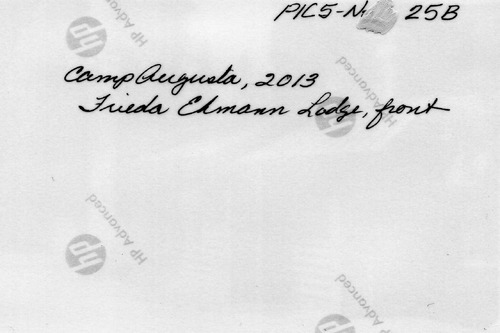 PIC5-N 25B
Camp Augusta, 2013
Frieda Ehmann Lodge, front
HP Advanced
hp
HP Advanced
hp
HP Advanced
hp
HP Advanced
hp